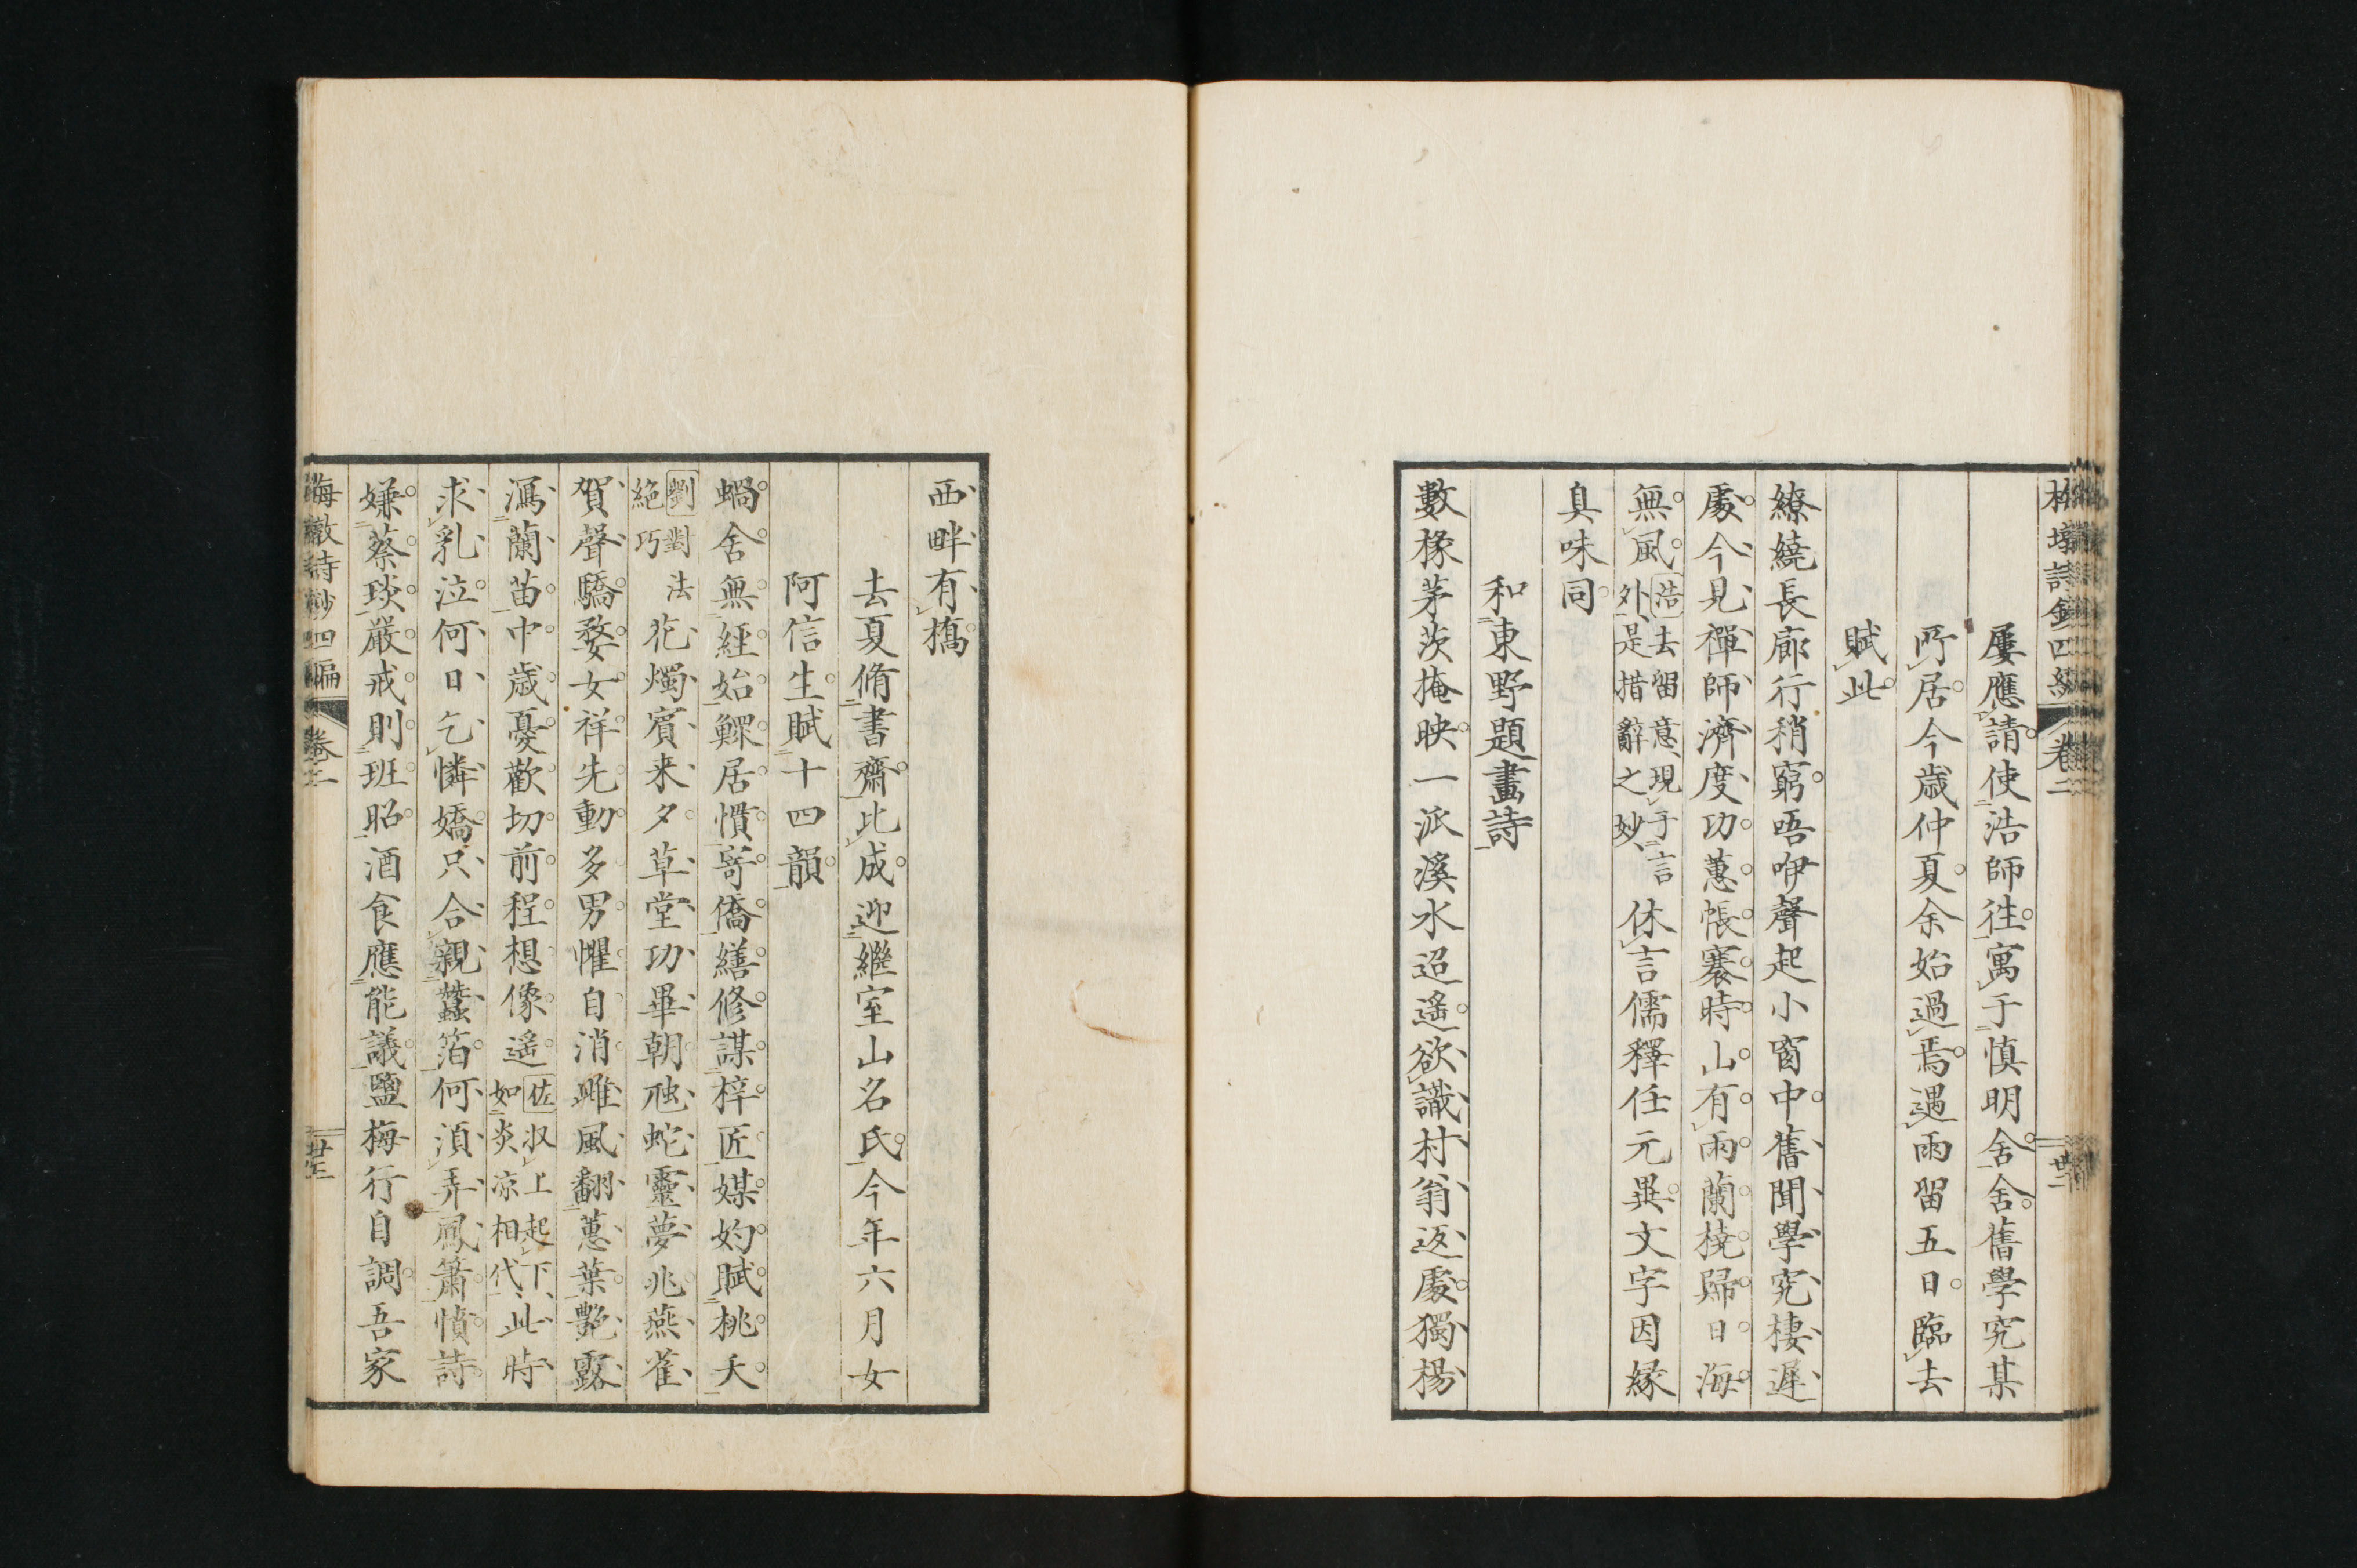 屢應請使浩師往寓于慎明舍舍舊學究某
所居今歲仲夏余始過焉遇雨留五日臨去
賦此
繚繞長廊行稍窮唔咿聲起小窗中舊聞學究棲遲
處今見禪師濟度功蕙帳褰時山有雨蘭橈歸日海
無風
浩去留意現于言
外是措辭之妙
休言儒釋任元異文字因緣
真味同
和東野題畫詩
數椽茅茨掩映一派溪水迢遙欲識村翁返處獨楊
西畔有橋
去夏脩書齋比成迎繼室山名氏今年六月女
阿信生賦十四韻
蝸舍無經始鰥居慣寄僑繕修謀梓匠媒妁賦桃夭
劉對法
絕巧
花燭賓来夕草堂功畢朝虺蛇靈夢兆燕雀
賀聲驕婺女祥先動多男懼自消雖風翻蕙葉艷露
瀉蘭苗中歲憂歡切前程想像遙
佐収上起下
如炎涼相代
此時
求乳泣何日乞憐嬌只合親蠶箔何須弄鳳簫憤詩
嫌蔡琰嚴戒則班昭酒食應能議鹽梅行自調吾家
梅墩詩鈔四編 卷二